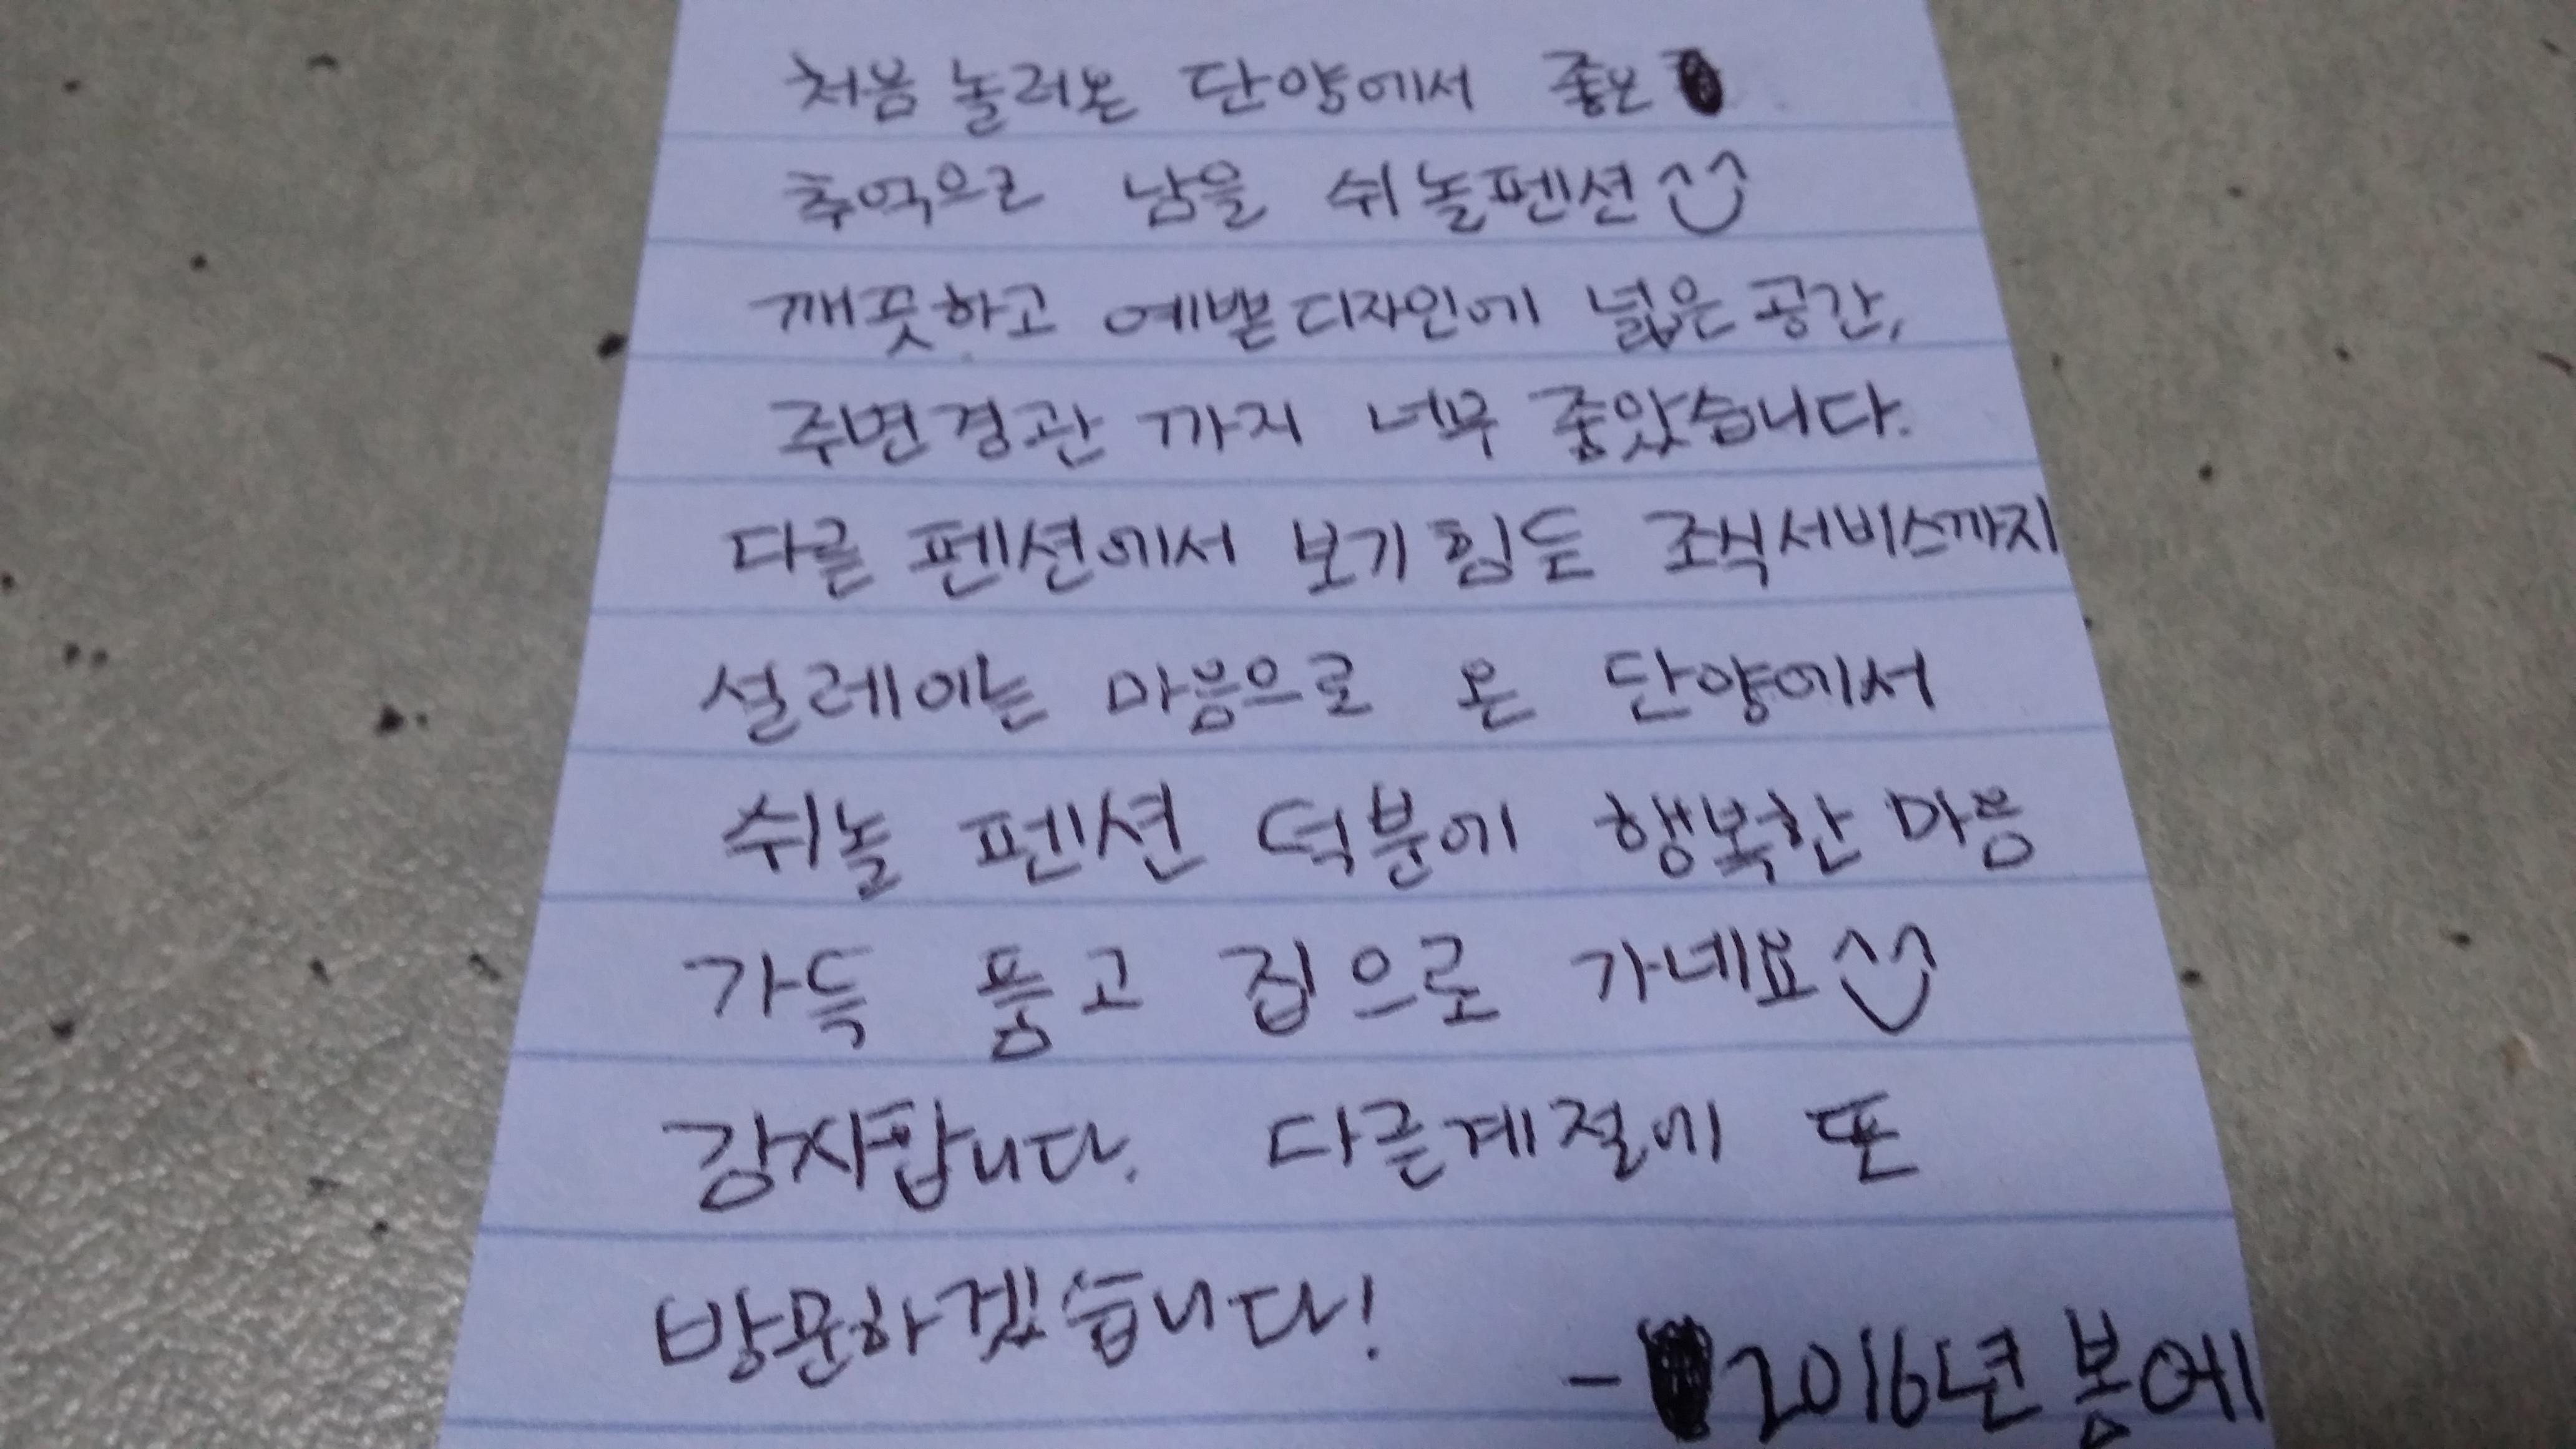 처음 놀러온 단양에서 좋은
추억으로 남을 쉬놀펜션^^
깨끗하고 예쁜 디자인에 넓은 공간,
주변경관 까지 너무 좋았습니다.
다른 펜션에서 보기 힘든 조식서비스까지
설레이는 마음으로 온 단양에서
쉬놀 펜션 덕분에 행복한 마음
가득 품고 집으로 가네요^^
감사합니다. 다른계절에 또
방문하겠습니다!
- 2016년 봄에